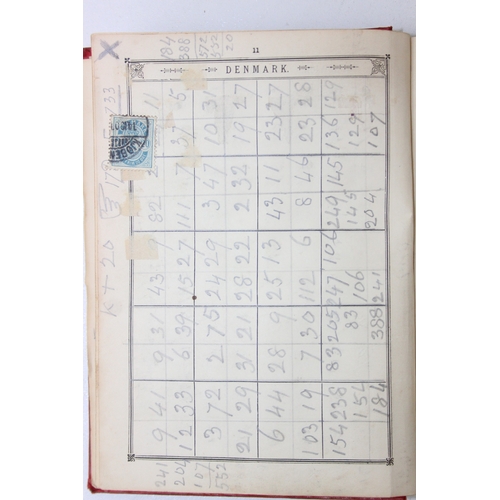 11
DENMARK.
X
184
388
572
332
20
K + 20
9 41 9 31 43 9 82 11
12 33 6 39 15 27 11 7 37 5
3 72 2 75 24 29 3 47 10 3
21 29 31 21 28 22 2 32 19 27
6 44 28 9 25 13 43 11 23 27
103 19 7 30 112 6 8 46 23 28
154 238 83 205 247 106 249 145 136 129
154 83 106 145 129
184 388 241 204 107
241
204
107
552